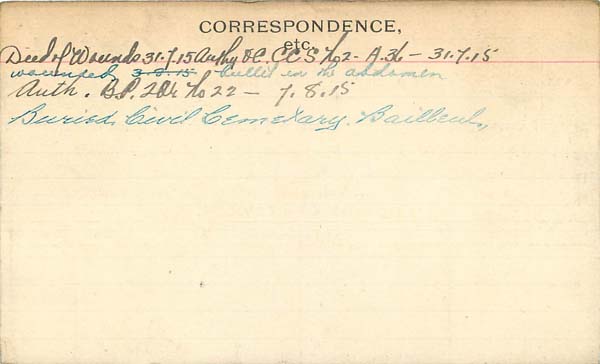 CORRESPONDENCE,
etc.
Died of Wounds 31.7.15 Authy O.C. C.C.S. No 2 - A.36 - 31.7.15
wounded 3.8.15 bullit in the abdomen
Auth. B.P. 2 Or No 22 - 7.8.15
Buried. Civil Cemetary. Bailleul,,